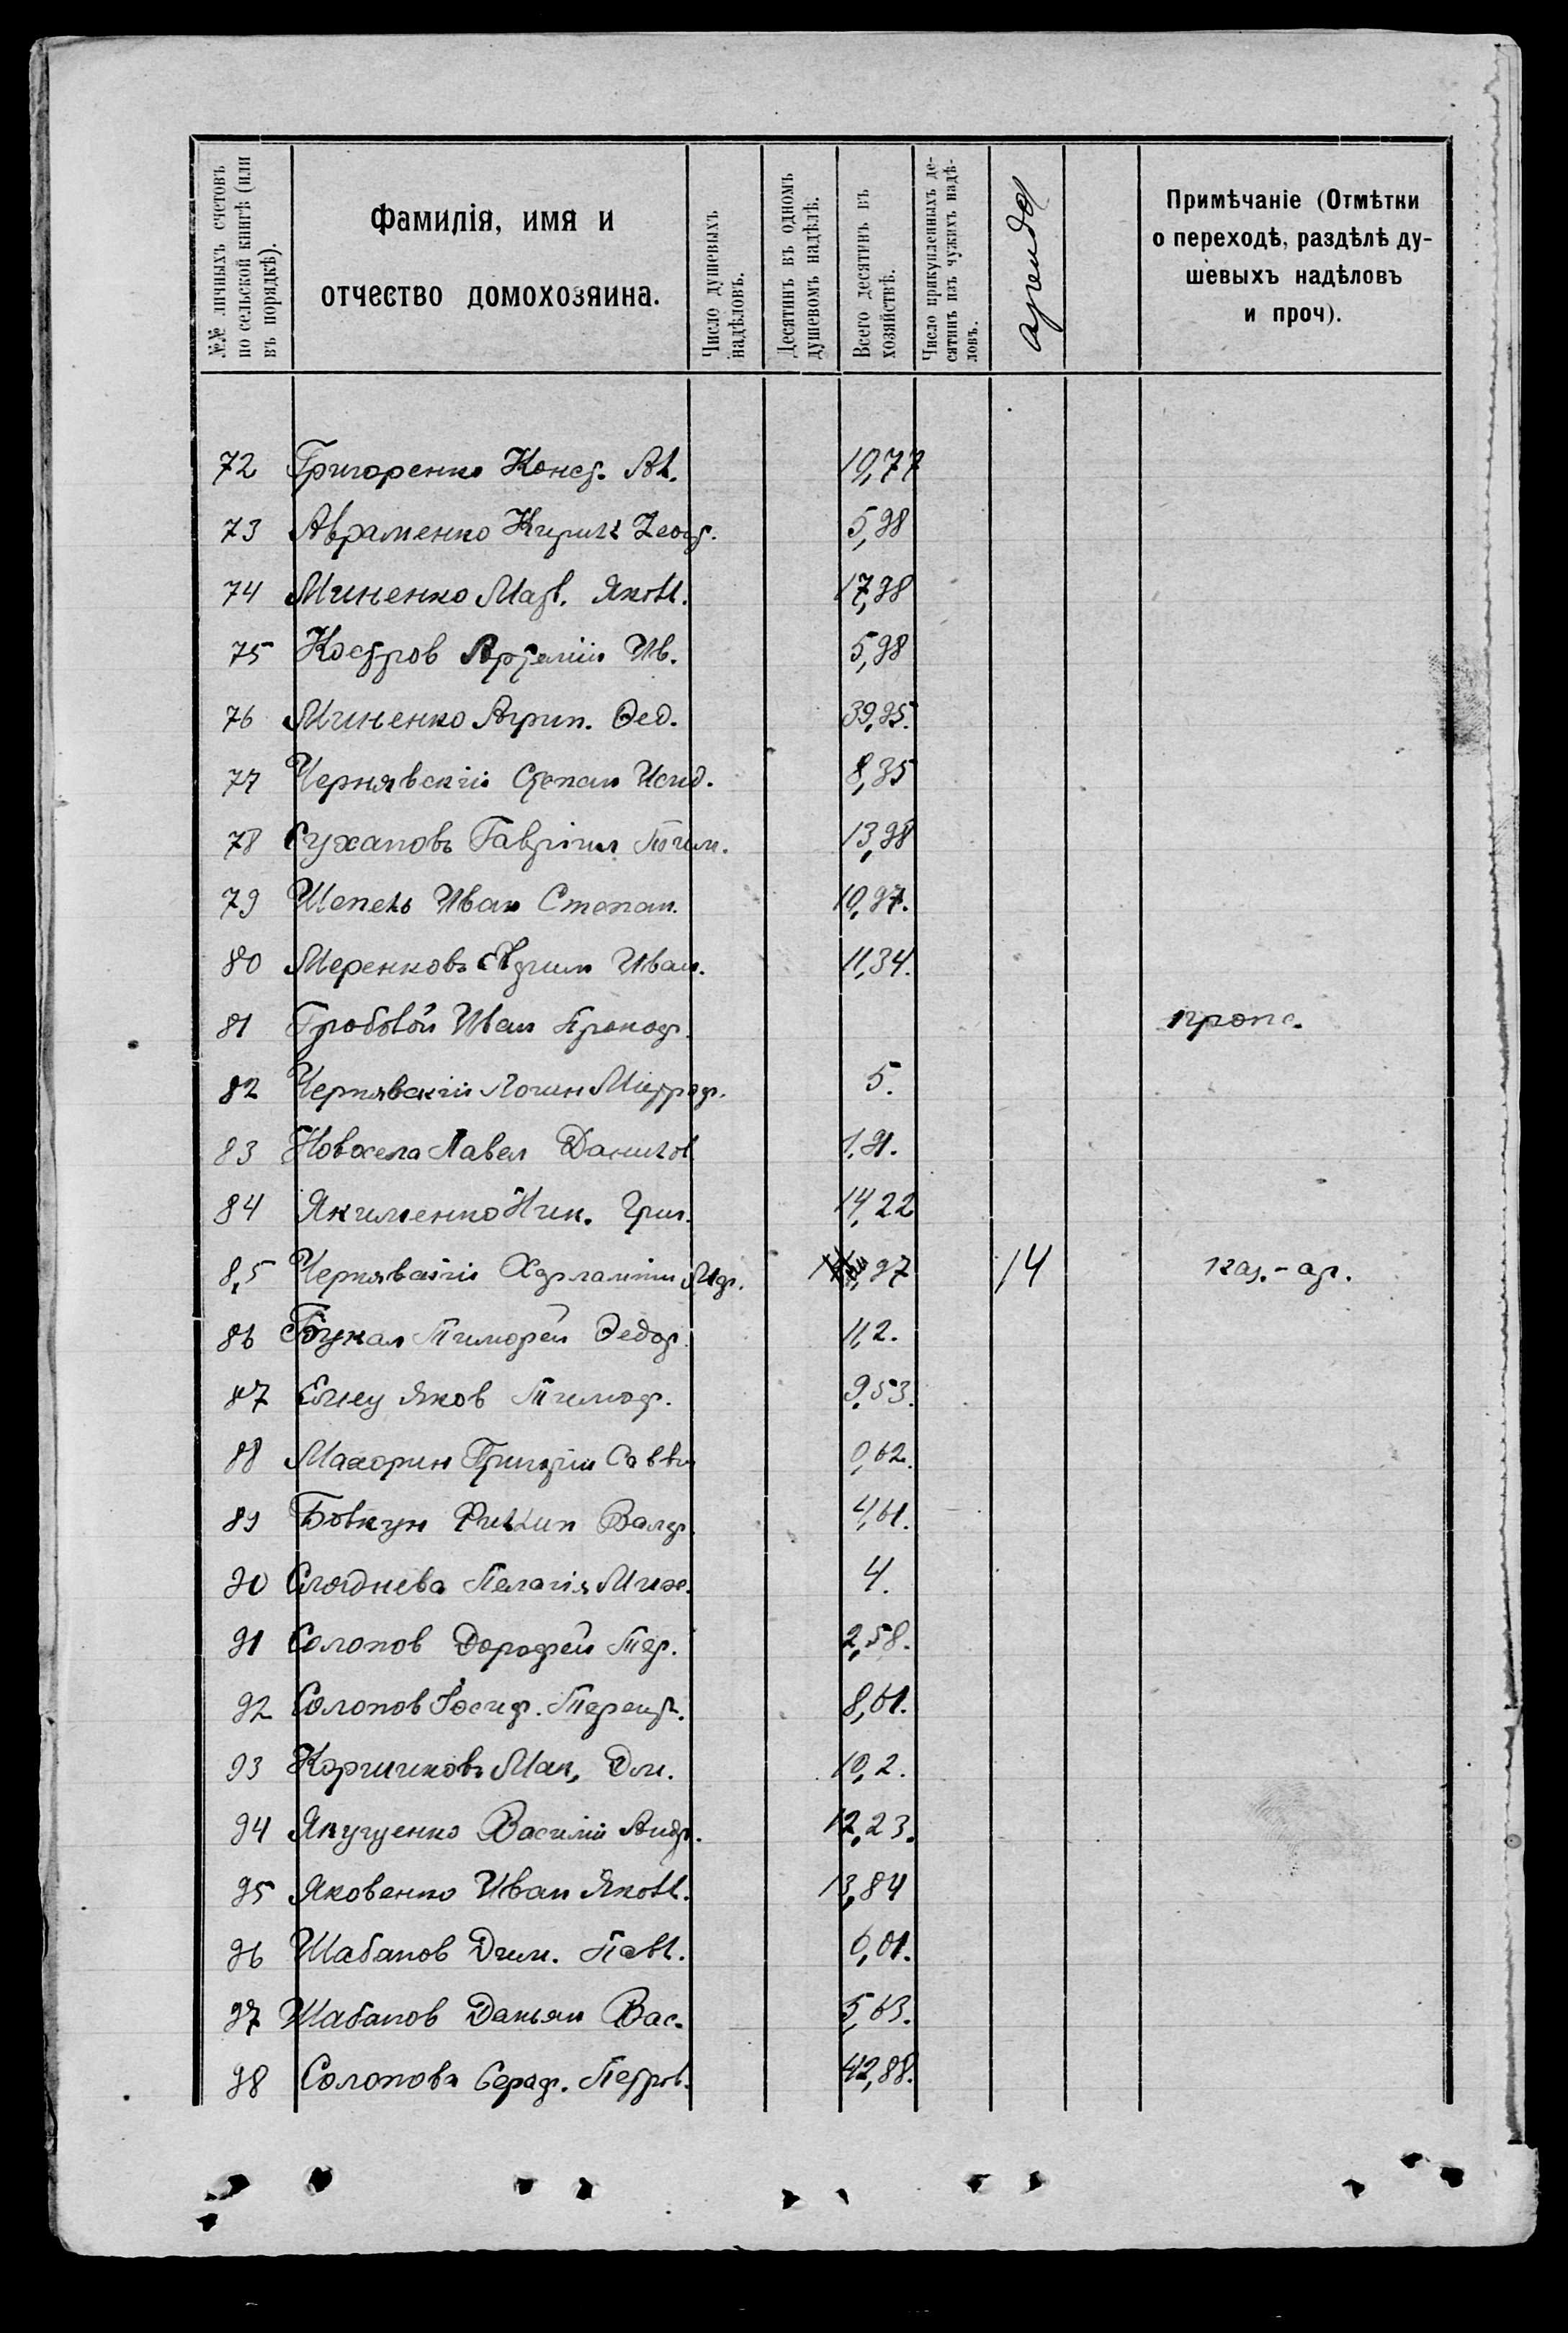 №№ личныхъ счетовъ
по сельской книгѣ (или
въ порядкѣ).
Фамилія, имя и
отчество домохозяина.
Число душевыхъ
надѣловъ.
Десятинъ въ одномъ
душевомъ надѣлѣ.
Всего десятинъ въ
хозяйствѣ.
Число прикупленныхъ де-
сятинъ изъ чужихъ надѣ-
ловъ.
аренда
Примѣчаніе (Отмѣтки
о переходѣ, раздѣлѣ ду-
шевыхъ надѣловъ
и проч).
72 Григоренко Конст. Ал. 10,77
73 Авраменко Кирилл Леонт. 5,98
74 Миненко Матв. Яковл. 17,98
75 Костров Артемій Ив. 5,98
76 Миненко Агрип. Фед. 39,95.
77 Чернявскій Степан Исид. 8,35
78 Сухановъ Гавріил Тим. 13,98
79 Шепель Иван Степан. 10,97.
80 Меренковъ Ефим Иван. 11,34.
81 Гробовой Иван Прокоф. пропс.
82 Чернявскій Логин Митроф. 5.
83 Новохела Павел Данилов 1,91.
84 Якименко Ник. Григ. 14,22
85 Чернявскій Харлампій ,97 14 каз.-ар.
86 Тимофей Федор. 11,2.
87 Елису Яков Тимоф. 9,53.
88 Махорин Григорій Савви 0,62.
89 Бовкун Филипп 4,61.
90 Слюднева Пелагія Мих. 4.
91 Солопов Дорофей Тер. 2,58.
92 Солопов Іосиф. Терент. 8,61.
93 Коршиковъ Мак. Дм. 10,2.
94 Якущенко Василій Андр. 12,23.
95 Яковенко Иван Яковл. 13,84
96 Шабанов Дим. Павл. 6,01.
97 Шабанов Демьян Вас. 5,63.
98 Солопова Сераф. Петров. 42,88.